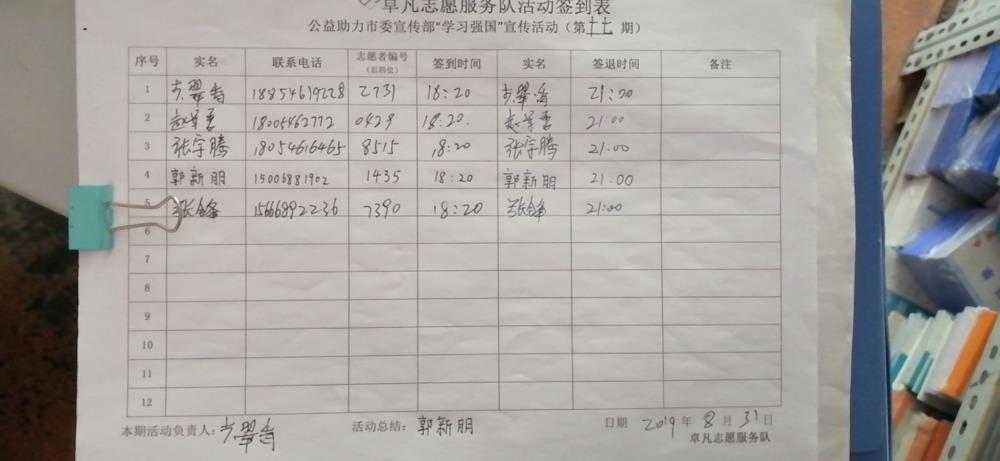 卓凡志愿服务队活动签到表
公益助力市委宣传部"学习强国"宣传活动（第十七期）
序号 实名 联系电话 志愿者编号（后四位） 签到时间 实名 签退时间 备注
1 步翠香 18854619228 2731 18:20 步翠香 21:00
2 18005462772 0429 18:20. 21:00
3 张宇腾 18054616465 8515 18:20 张宇腾 21:00
4 郭新朋 15006881902 1435 18:20 郭新朋 21:00
5 张锋 15666892236 7390 18:20 张锋 21:00
6
7
8
9
10
11
12
本期活动负责人：步翠香 活动总结：郭新朋 日期 2019年8月31日
卓凡志愿服务队